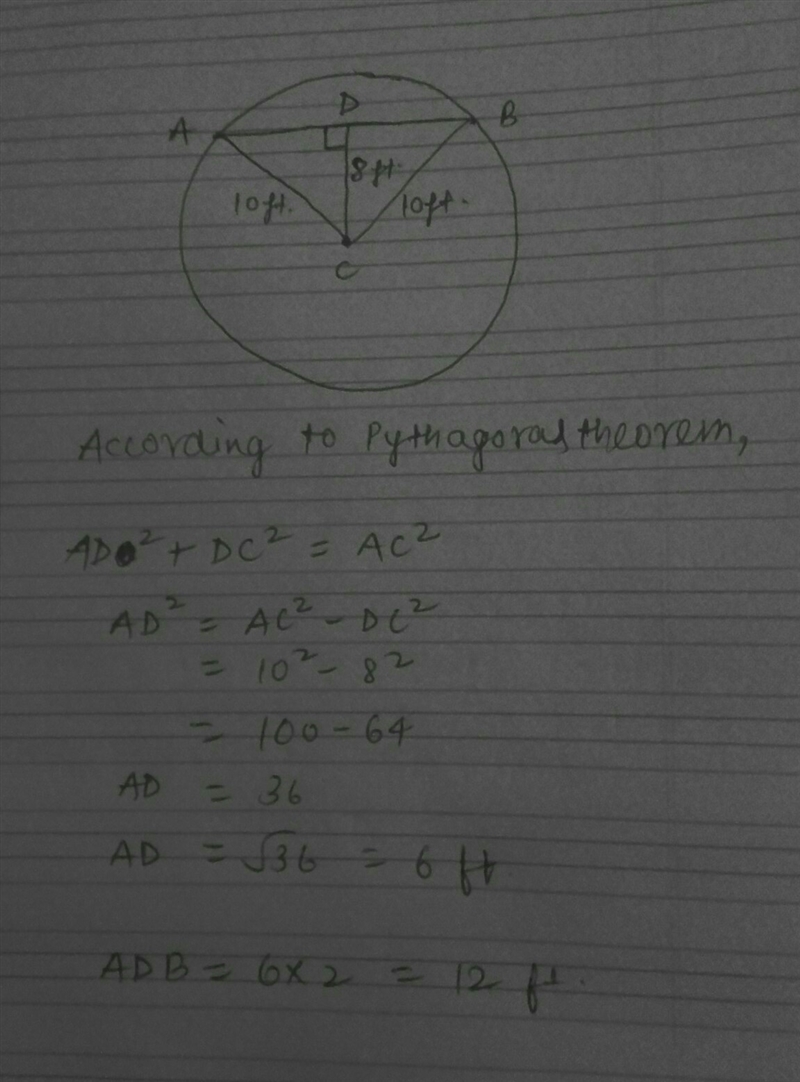 D
A B
8ft.
10ft. 10ft.
C
According to Pythagoras theorem,
AD² + DC² = AC²
AD² = AC² - DC²
= 10² - 8²
= 100 - 64
AD = 36
AD = √36 = 6 ft
ADB = 6×2 = 12 ft.